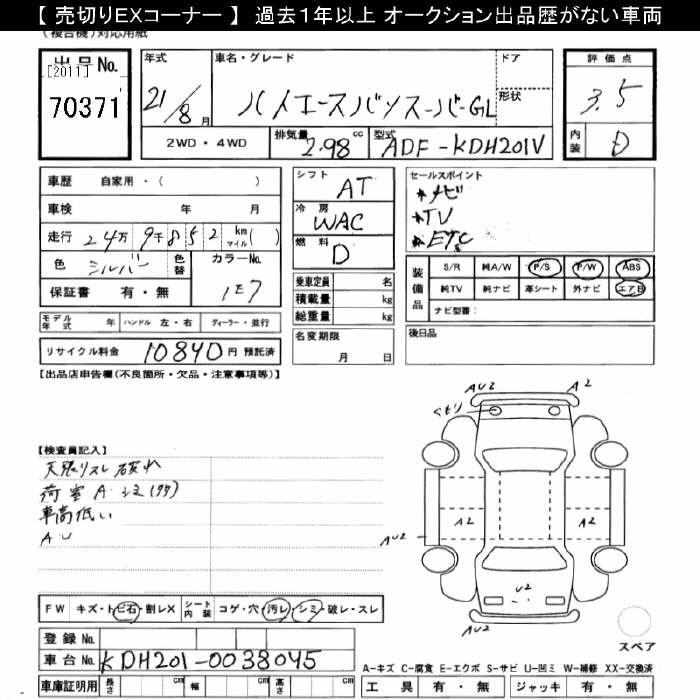 【 売切りEXコーナー 】 過去1年以上 オークション出品歴がない車両
(複合機)対応用紙
出品No.
[2011]
70371
年式
21/8月
車名・グレード
ハイエースバンスーパーGL
ドア
形状
評価点
3.5
内装
D
2WD・4WD
排気量
2.98 cc
型式
ADF-KDH201V
車歴 自家用・( )
車検 年 月
走行 24万9千852 km マイル( )
色 シルバー 色替 カラーNo. 1E7
保証書 有・無
モデル年式 年 ハンドル 左・右 ディーラー・並行
リサイクル料金 10840円 預託済
シフト AT
冷房 WAC
燃料 D
乗車定員 名
積載量 kg
総重量 kg
名変期限
月 日
セールスポイント
ナビ
TV
ETC
装備品
S/R 純A/W P/S P/W ABS
純TV 純ナビ 革シート 外ナビ エアB
ナビ型番:
後日品
【出品店申告欄(不良箇所・欠品・注意事項等)】
【検査員記入】
天張リスレ 破れ
荷室 A シミ(タタ)
車高低い
AU
AU2
A2
くもり
A2
A2
AU2
A2
U2
AU2
スペア
FW キズ・ト ビ石・割レX シート内装 コゲ・穴・汚レ・シミ・破レ・スレ
登録No.
車台No. KDH201-0038045
車庫証明用 長さ cm 幅 cm 高さ cm
A-キズ C-腐食 E-エクボ S-サビ U-凹ミ W-補修 XX-交換済
工具 有・無 ジャッキ 有・無